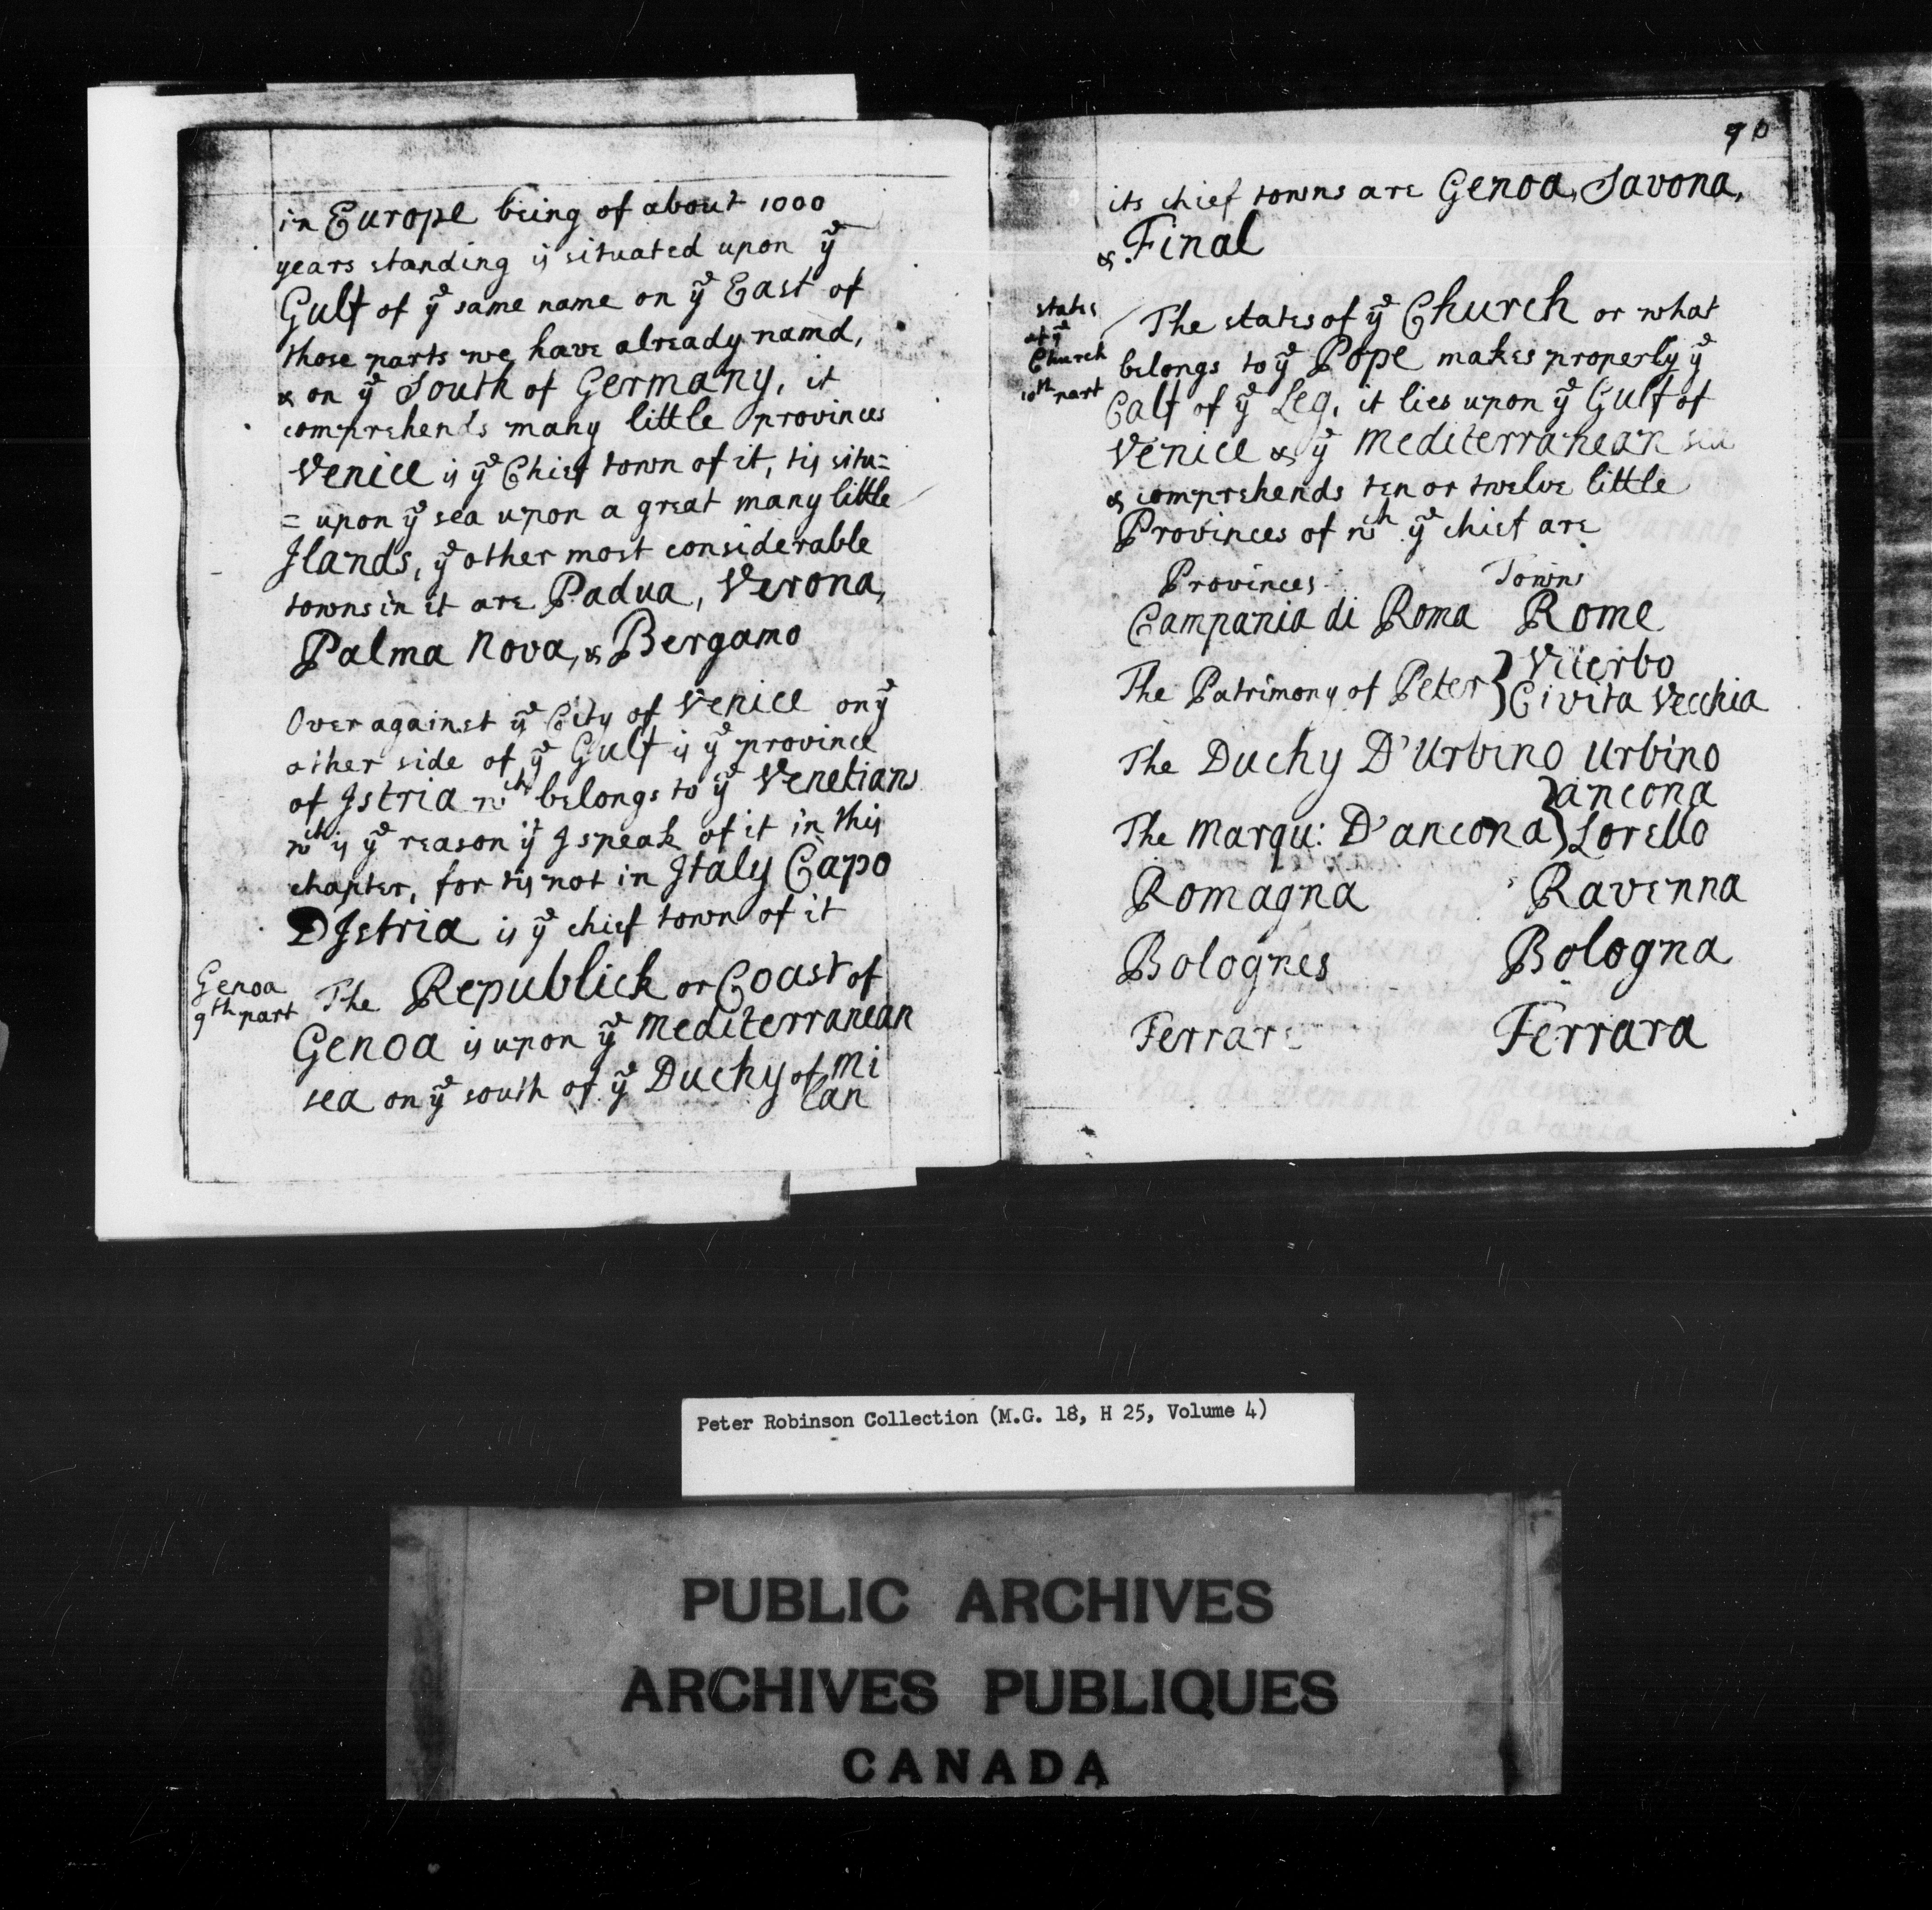 in Europe being of about 1000
years standing is situated upon ye
Gulf of ye same name on ye East of
those parts we have already namd,
& on ye South of Germany, it
comprehends many little provinces
Venice is ye Chief town of it, tis situ=
= upon ye sea upon a great many little
Ilands, ye other most considerable
towns in it are Padua, Verona,
Palma Nova, & Bergamo
Over against ye City of Venice on ye
other side of ye Gulf is ye province
of Istria wch belongs to ye Venetians
wch is ye reason yt I speak of it in this
chapter, for tis not in Italy Capo
D Istria is ye chief town of it
Genoa
9th part
The Republick or Coast of
Genoa is upon ye Mediterranean
sea on ye south of ye Duchy of Mi
lan
90
its chief towns are Genoa, Savona,
& Final
states
of ye
Church
10th part
The states of ye Church or what
belongs to ye Pope makes properly ye
Calf of ye Leg, it lies upon ye Gulf of
Venice & ye Mediterranean sea
& comprehends ten or twelve little
Provinces of wch ye chief are
Provinces Towns
Campania di Roma Rome
The Patrimony of Peter } Viterbo
Civita Vecchia
The Duchy D'Urbino Urbino
The Marqu: D'ancona } ancona
Loretto
Romagna Ravenna
Bolognes Bologna
Ferrare Ferrara
Peter Robinson Collection (M.G. 18, H 25, Volume 4)
PUBLIC ARCHIVES
ARCHIVES PUBLIQUES
CANADA